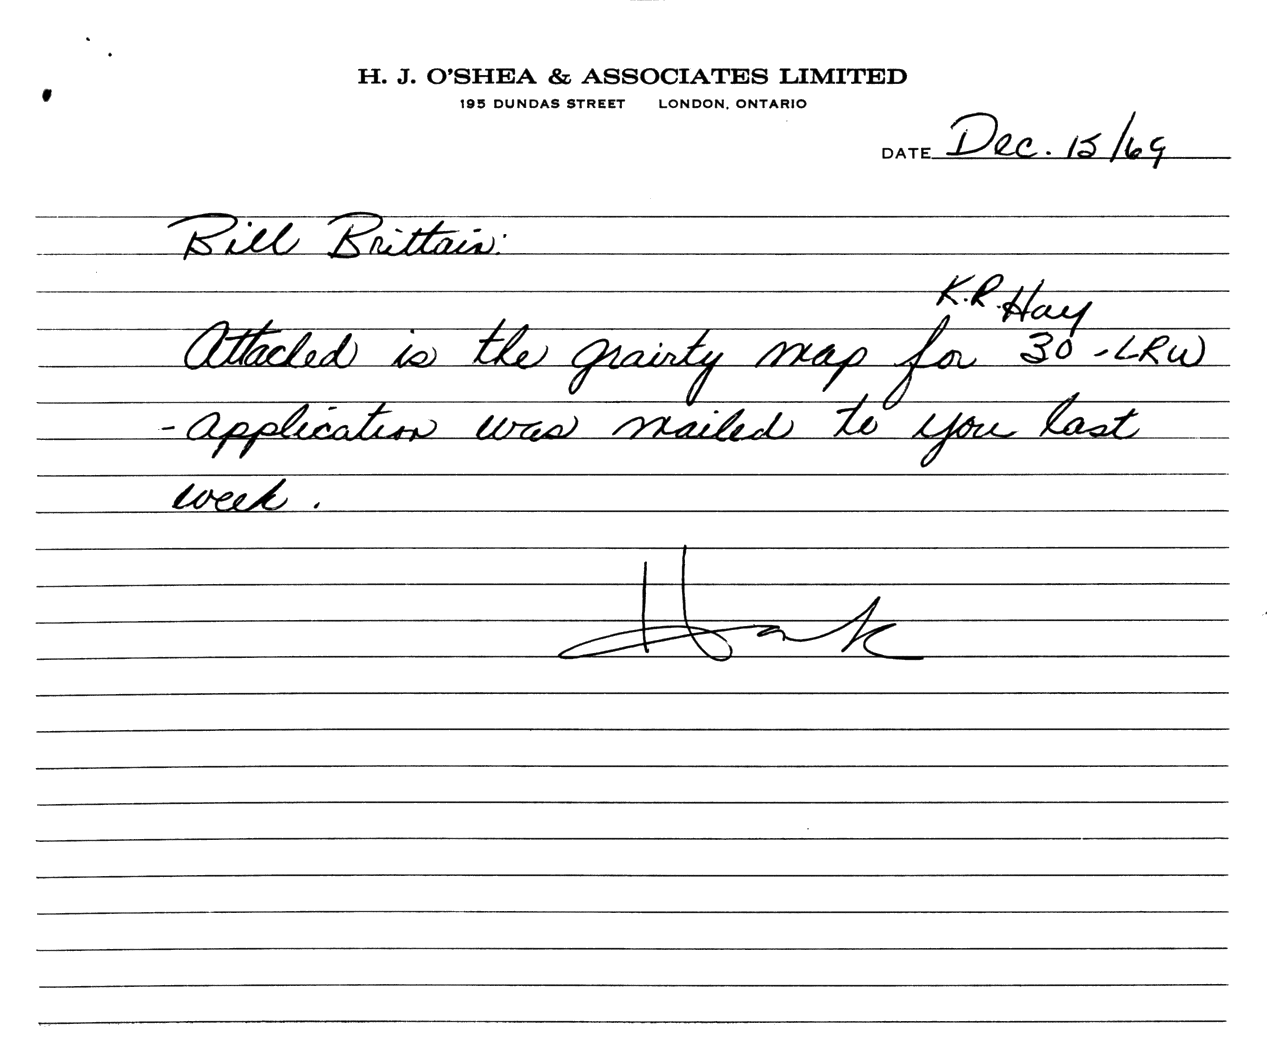 H. J. O'SHEA & ASSOCIATES LIMITED
195 DUNDAS STREET LONDON, ONTARIO
DATE Dec. 15/69
Bill Brittain:
K.R. Hay
Attached is the gravity map for 30 - LRW
- application was mailed to you last
week.
Hank